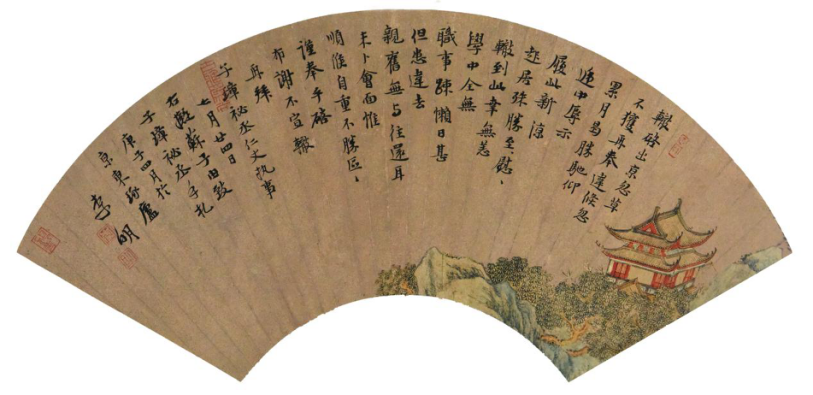 轍啓出京忽草
不獲再奉違倏忽
累月曷勝馳仰
遞中辱示
履此新涼
起居殊勝至慰、
轍到此幸無恙
學中全無
職事疎懶日甚
但恐違去
親舊無与往還耳
未卜會面惟
順候自重不勝區、
謹奉手啓
布謝不宣轍
再拜
子璋秘丞仁丈執事
七月廿四日
右臨蘇子由致
子璋秘丞手札
庚子四月於
京東琢廬
李明